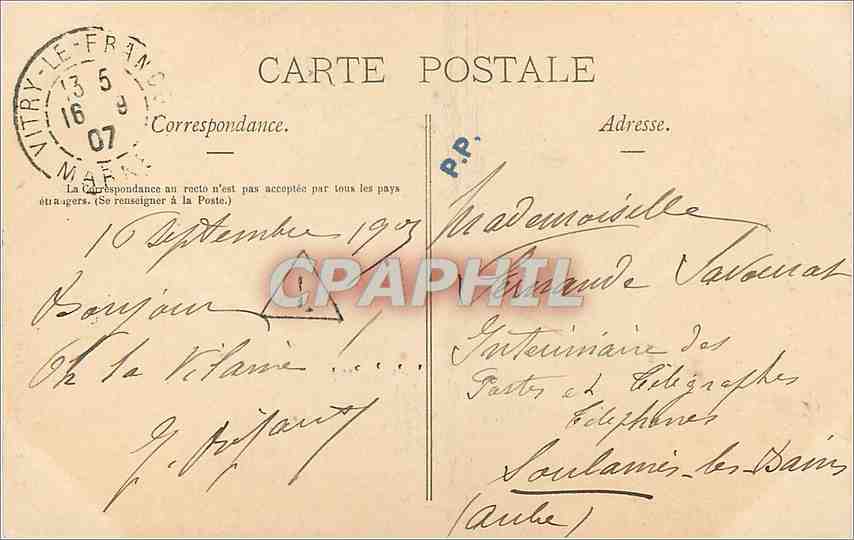 CARTE POSTALE
VITRY-LE-FRANÇOIS
13 5
16 9
07
MARNE
Correspondance.
Adresse.
P.P.
La Correspondance au recto n'est pas acceptée par tous les pays
étrangers. (Se renseigner à la Poste.)
16 Septembre 1907
Bonjour
Oh la Vilaine !.....
Mademoiselle
Fernande Savourat
Intérimaire des
Postes et Télégraphes
Téléphones
Soulaines-les-Bains
(Aube)
CPAPHIL